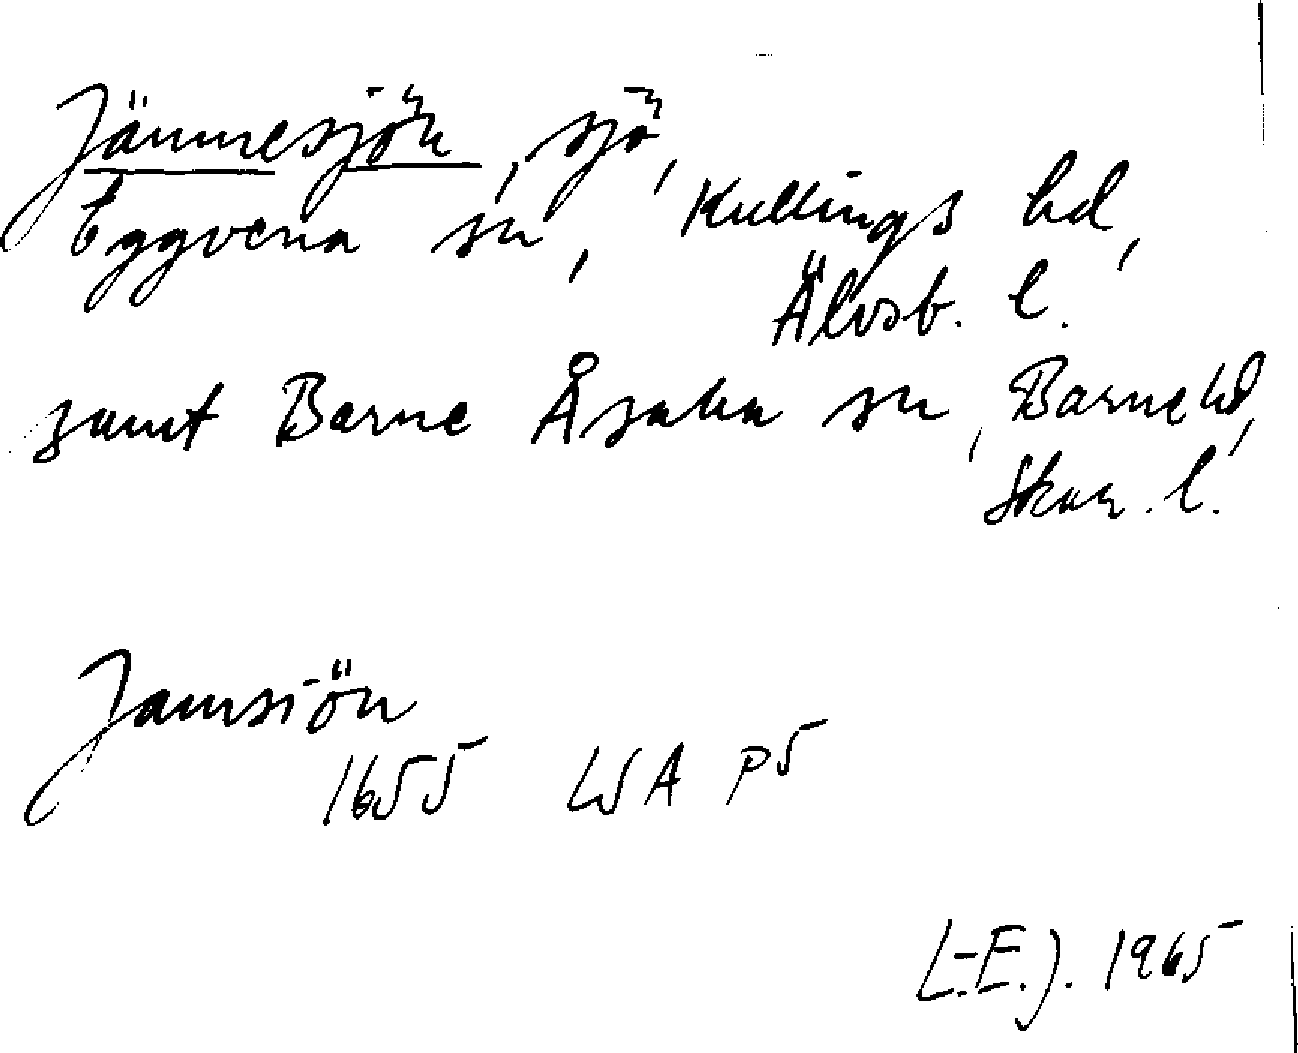 Jännesjön, sjö,
Eggvena sn, Kullings hd,
Älvsb. l.
samt Barne Åsaka sn, Barne hd,
Skar. l.
Jamsiön
1655 LSA P5
L.-E. J. 1965